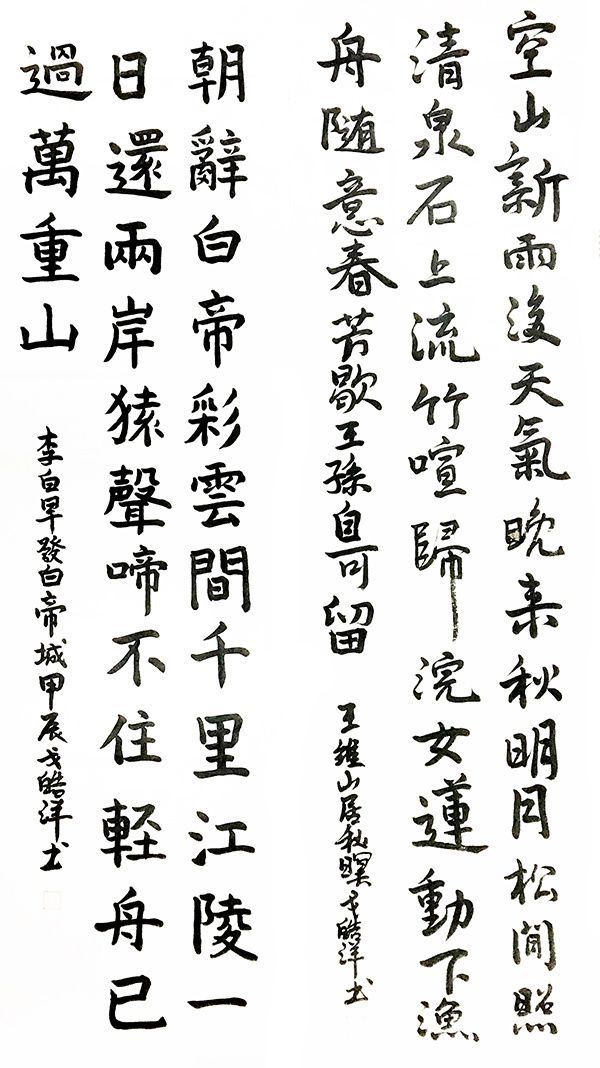 空山新雨後天氣晚来秋明月松間照
清泉石上流竹喧歸浣女蓮動下漁
舟随意春芳歇王孫自可留
王維山居秋暝戈皓洋书
朝辭白帝彩雲間千里江陵一
日還兩岸猿聲啼不住軽舟已
過萬重山
李白早發白帝城甲辰戈皓洋书